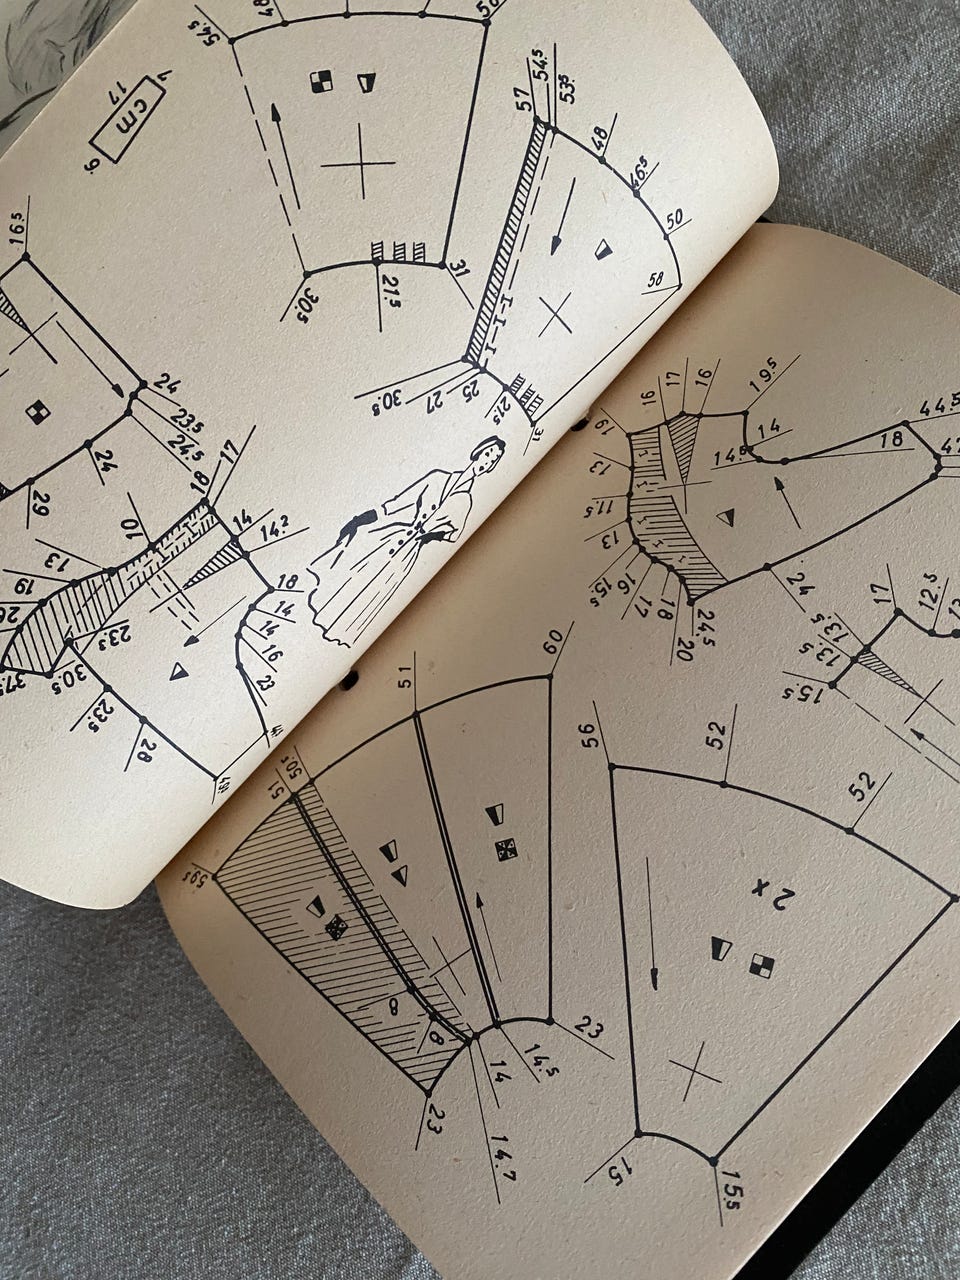 54.5
cm
17
30.5
21.5
31
57
54.5
53.5
48
46.5
50
58
30.5
27
25
21.5
31
16.5
24
23.5
24.5
24
29
17
18
10
14
14.2
13
19
18
14
14
16
23
23.5
30.5
23.5
28
19
16
17
16
19.5
14
14.5
18
44.5
13
11.5
13
15.5
16
17
18
20
24.5
24
17
12.5
13.5
13.5
15.5
51
60
50.5
51
59.5
8
8
23
14
14.7
14.5
23
56
52
52
2 x
15
15.5